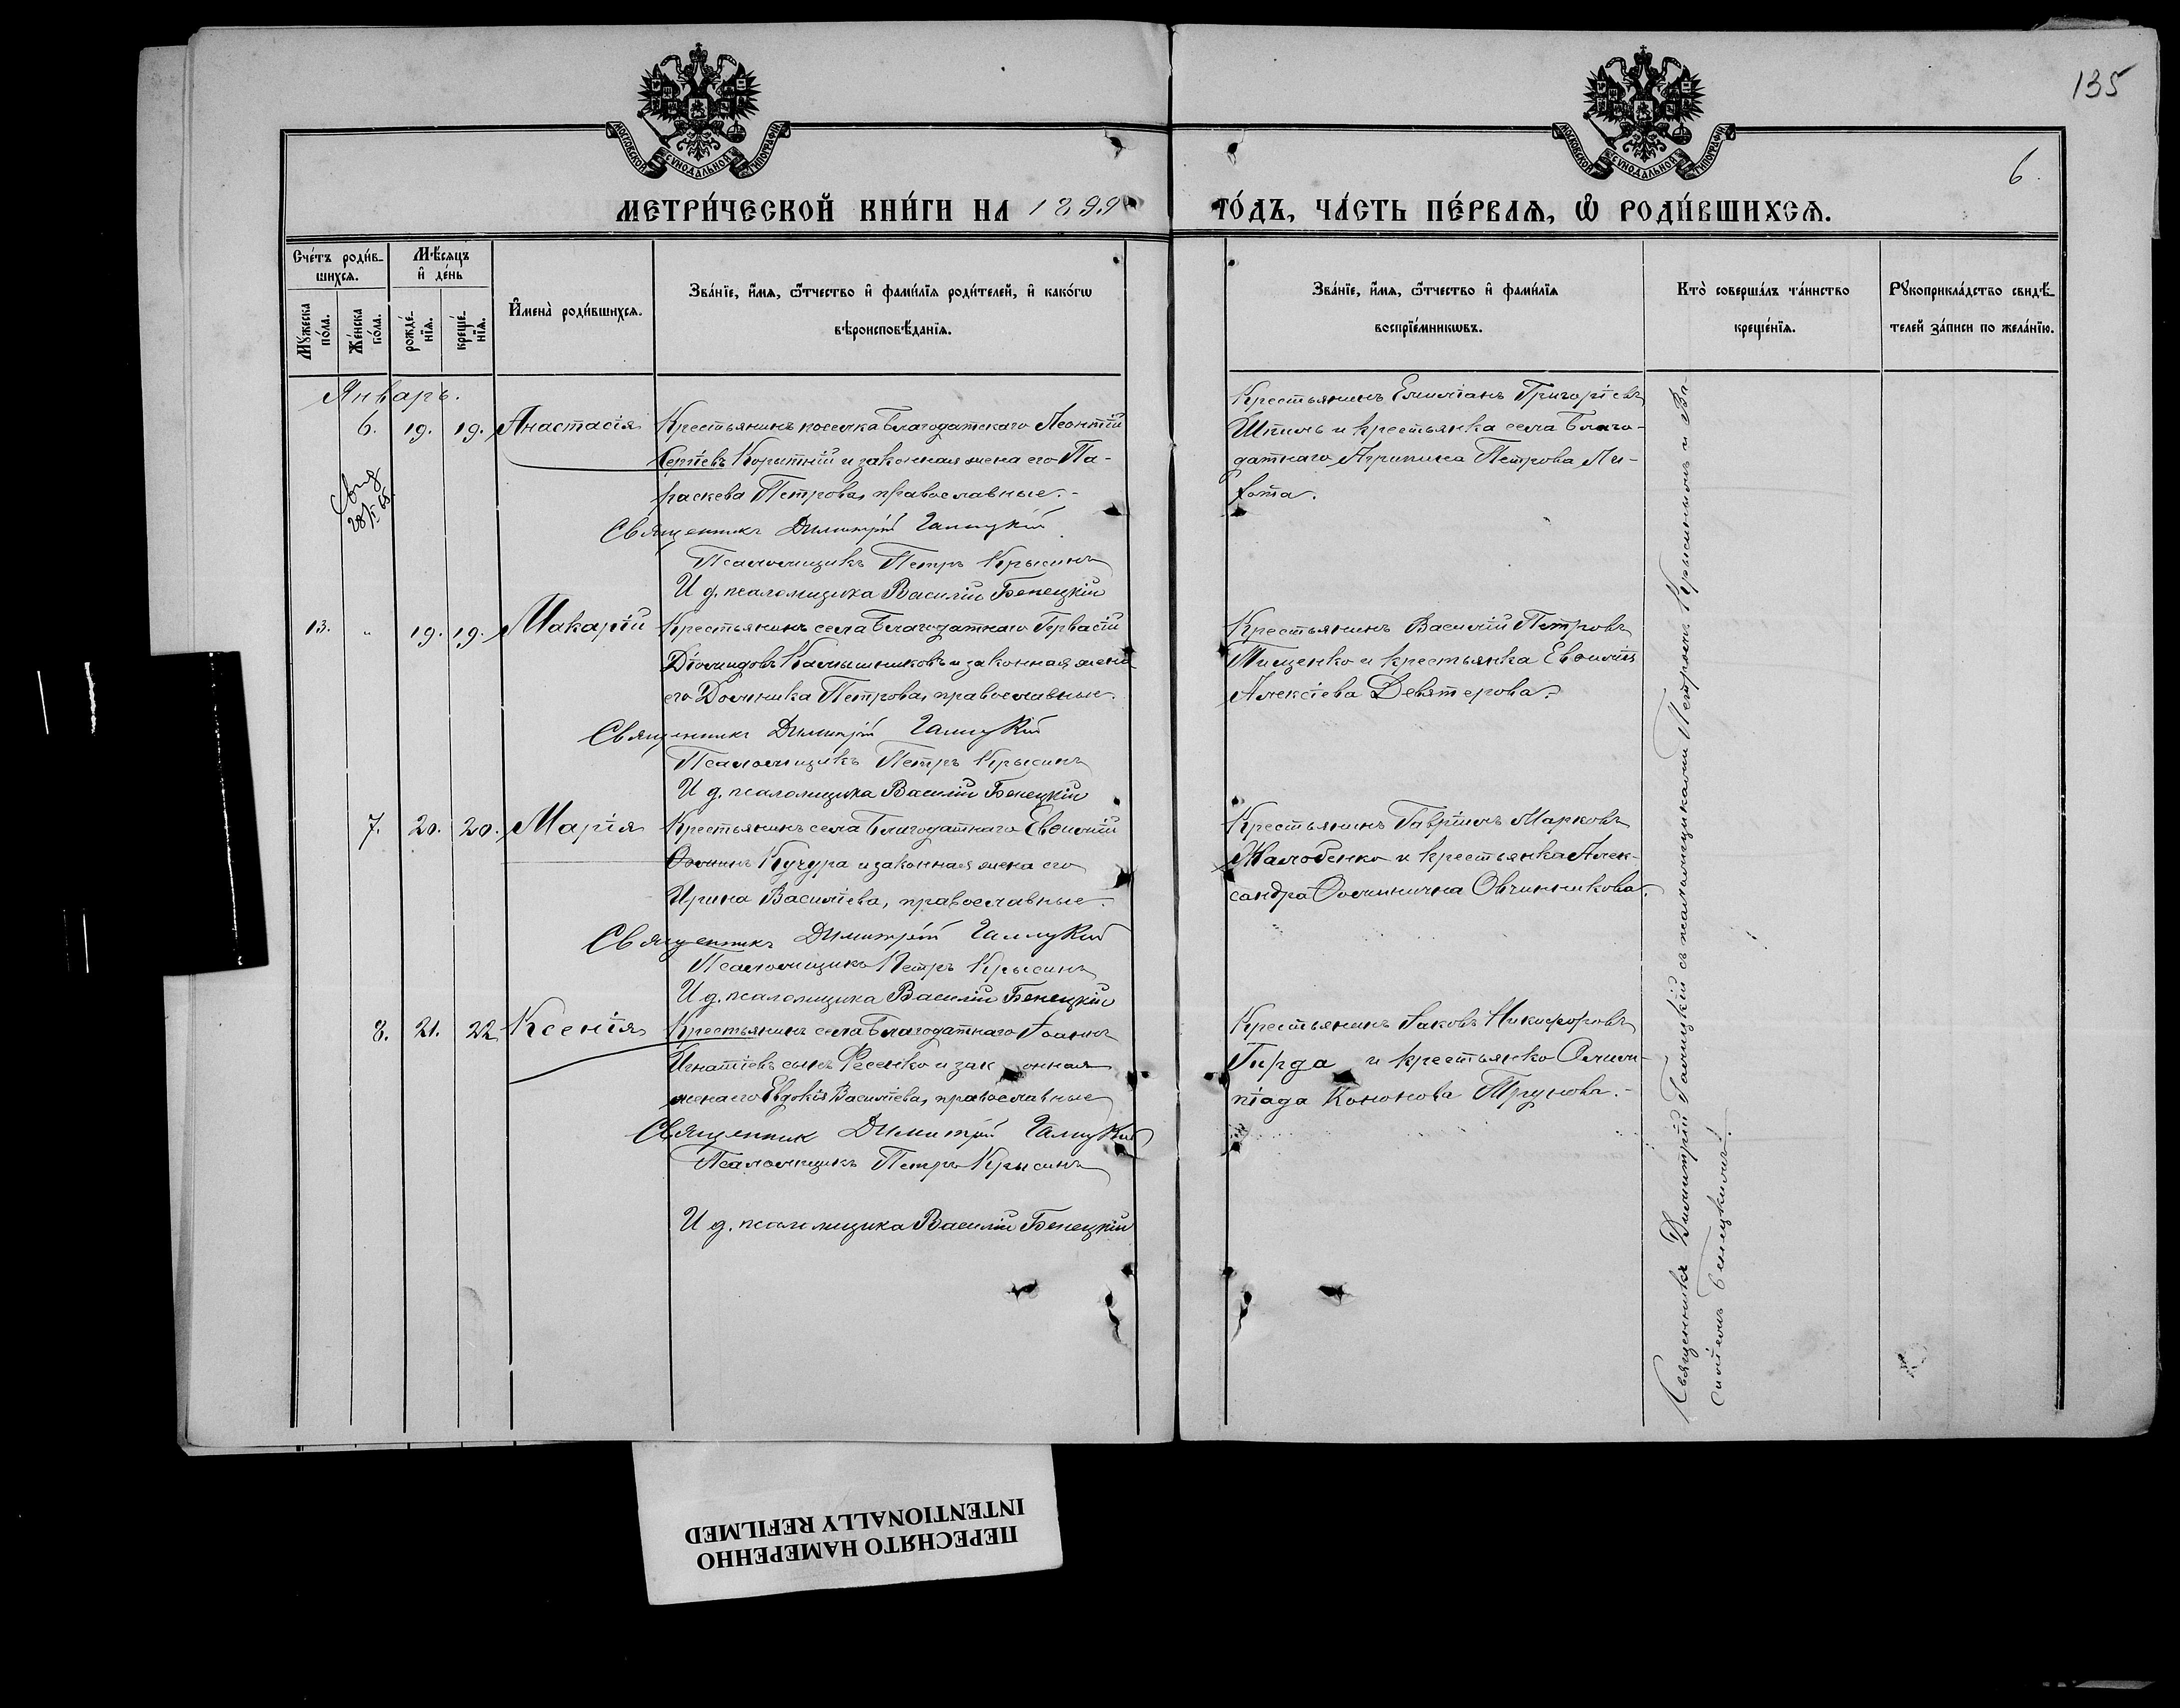 135
6.
МОСКОВСКОЙ СѴНОДАЛЬНОЙ ТИПОГРАФІИ
МОСКОВСКОЙ СѴНОДАЛЬНОЙ ТИПОГРАФІИ
МЕТРИ́ЧЕСКОЙ КНИ́ГИ НА 1899 ГО́ДЪ, ЧА́СТЬ ПЕ́РВАѦ, Ѡ҆ РОДИ́ВШИХСѦ.
Сче́тъ роди́в-
шихсѧ.
Мꙋ́жеска по́ла.
Же́нска по́ла.
Мѣ́сѧцъ
и҆ де́нь
рожде́-нїѧ.
креще́-нїѧ.
И҆мена̀ роди́вшихсѧ.
Зва́нїе, и҆́мѧ, ѻ҆́тчество и҆ фами́лїѧ роди́телей, и҆ како́гѡ
вѣроисповѣ́данїѧ.
Зва́нїе, и҆́мѧ, ѻ҆́тчество и҆ фами́лїѧ
воспрїе́мникѡвъ.
Кто̀ соверша́лъ та́инство
креще́нїѧ.
Рꙋкоприкла́дство свидѣ́-
телей за́писи по жела́нїю.
Январь.
6. 19. 19. Анастасія Крестьянинъ поселка Благодатскаго Леонтій
Сергіевъ Корытній и законная жена его Па-
раскева Петрова, православные.-
Священникъ Димитрій Галицкій
Псаломщикъ Петръ Крысинъ
И д. псаломщика Василій Бенецкій
Крестьянинъ Емиліанъ Григоріевъ
Шпиль и крестьянка села Благо-
датнаго Агрипина Петрова Ли-
хота.
28/I 65.
13. " 19. 19. Макарій Крестьянинъ села Благодатнаго Гервасій
Діомидовъ Камышниковъ и законная жена
его Домника Петрова, православные.
Священникъ Димитрій Галицкій
Псаломщикъ Петръ Крысинъ
И д. псаломщика Василій Бенецкій
Крестьянинъ Василій Петровъ
Тищенко и крестьянка Евфимія
Алексіева Девятерова.
7. 20. 20. Марія Крестьянинъ села Благодатнаго Евфимій
Фоминъ Кучура и законная жена его
Ирина Василіева, православные.
Священникъ Димитрій Галицкій
Псаломщикъ Петръ Крысинъ
И д. псаломщика Василій Бенецкій
Крестьянинъ Гавріилъ Марковъ
Жалобенко и крестьянка Алек-
сандра Фоминична Овчинникова.
8. 21. 22 Ксенія Крестьянинъ села Благодатнаго Іоаннъ
Игнатіевъ сынъ Фесенко и законная
жена его Евдокія Василіева, православные
Священник Димитрій Галицкій
Псаломщикъ Петръ Крысинъ
И д. псаломщика Василій Бенецкій
Крестьянинъ Іаковъ Никифоровъ
Гирда и крестьянка Олим-
піада Кононова Трунова.-
Священникъ Димитрій Галицкій съ псаломщиками Петромъ Крысинымъ и Ва-
силіемъ Бенецкимъ.
ПЕРЕСНЯТО НАМЕРЕННО
INTENTIONALLY REFILMED